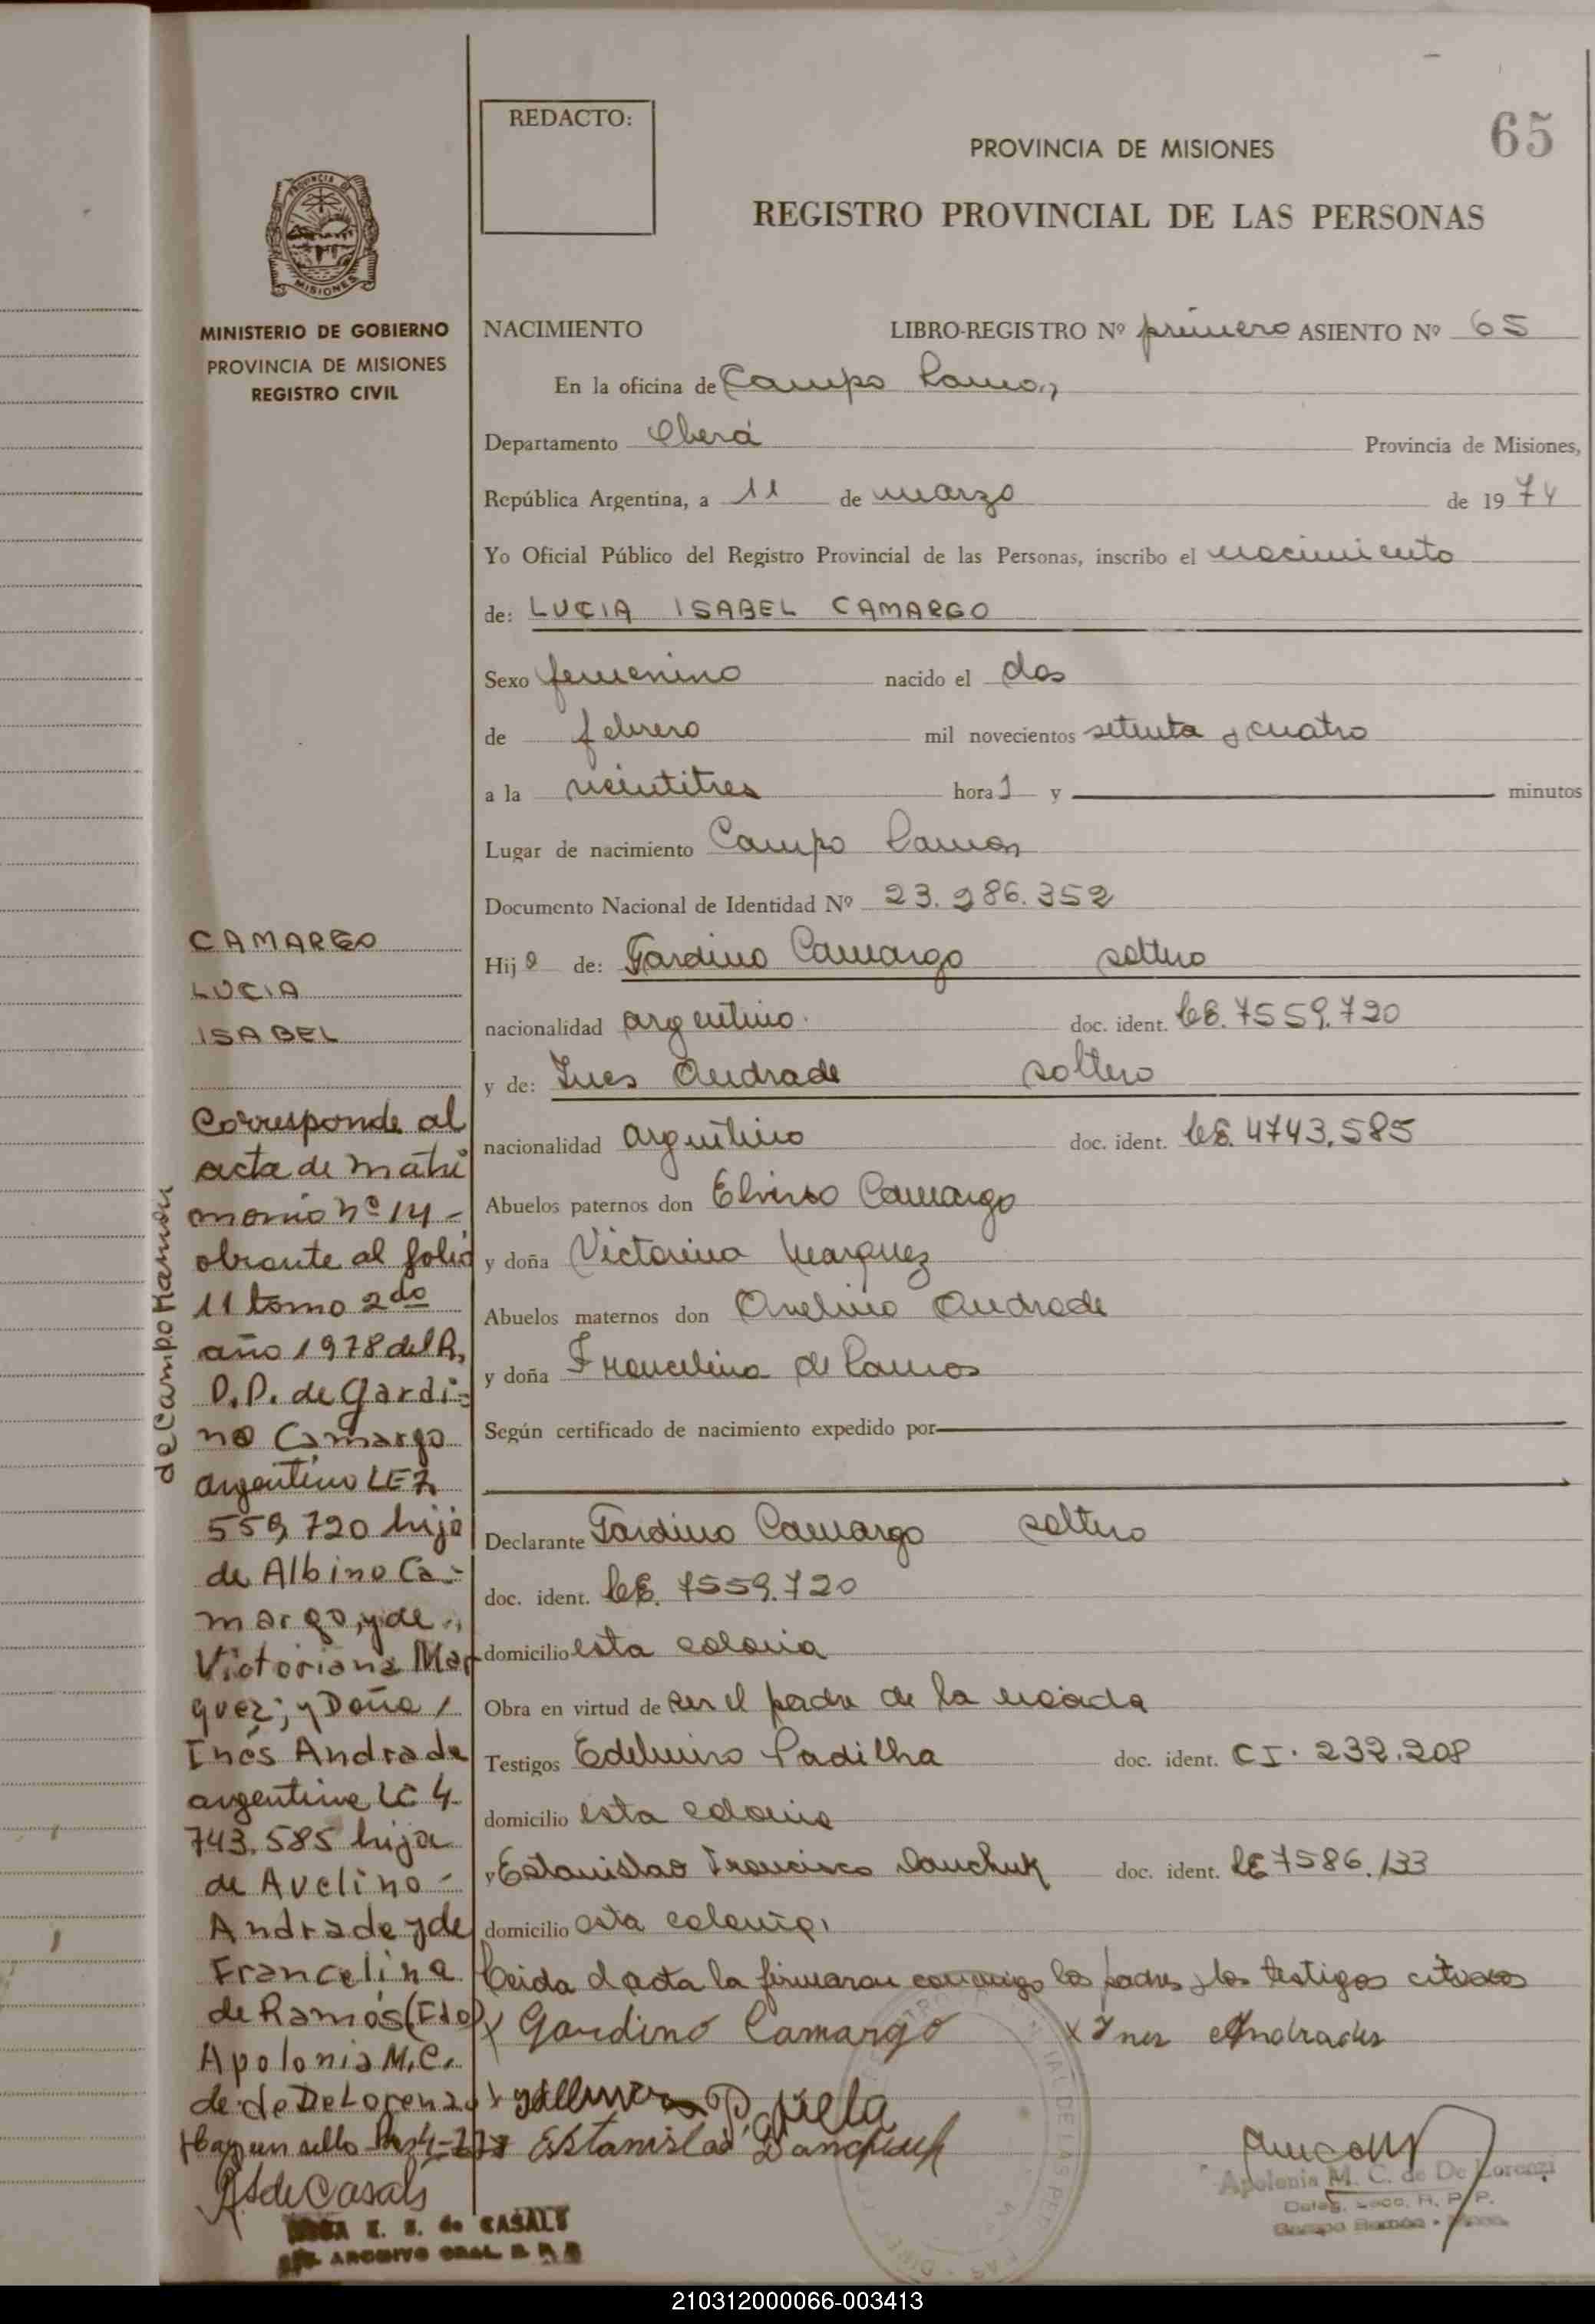 REDACTO:
PROVINCIA DE MISIONES
65
REGISTRO PROVINCIAL DE LAS PERSONAS
PROVINCIA DE
MISIONES
MINISTERIO DE GOBIERNO
PROVINCIA DE MISIONES
REGISTRO CIVIL
NACIMIENTO LIBRO-REGISTRO Nº primero ASIENTO Nº 65
En la oficina de Campo Ramon
Departamento Oberá Provincia de Misiones,
República Argentina, a 11 de marzo de 1974
Yo Oficial Público del Registro Provincial de las Personas, inscribo el nacimiento
de: LUCIA ISABEL CAMARGO
Sexo femenino nacido el dos
de febrero mil novecientos setenta y cuatro
a la veintitres hora s y minutos
Lugar de nacimiento Campo Ramon
Documento Nacional de Identidad Nº 23.286.352
Hija de: Gardino Camargo soltero
nacionalidad argentino. doc. ident. LE. 7559.720
y de: Ines Andrade soltera
nacionalidad argentina doc. ident. LC. 4743.585
Abuelos paternos don Camargo
y doña Victorina Marquez
Abuelos maternos don Avelino Andrade
y doña Francelina de Ramos
Según certificado de nacimiento expedido por
Declarante Gardino Camargo soltero
doc. ident. LE. 7559.720
domicilio esta colonia
Obra en virtud de ser el padre de la nacida
Testigos Edelmiro Padilha doc. ident. CI. 232.208
domicilio esta colonia
y Estanislao Francisco Danchuk doc. ident. LE 7586.133
domicilio esta colonia,
Leida el acta la firmaron conmigo los padres y los testigos citados
x Gardino Camargo x Ines Andrades
Estanislao Danchuk
Apolonia M. C. de De Lorenzi
Campo Ramón
CAMARGO
LUCIA
ISABEL
Corresponde al
acta de matri
monio nº 14 -
obrante al folio
11 tomo 2do
año 1978 del R.
P.P. de Gardi-
no Camargo
argentino LE 7.
559.720 hijo
de Albino Ca-
margo, y de
Victoriana Mar
quez; y Doña
Inés Andrade
argentina LC 4.
743.585 hija
de Avelino -
Andrade y de
Francelina
de Ramos (Fdo)
Apolonia M.C.
de De Lorenzo
Hay un sello
de Campo Ramón
de Casals
E. S. de CASALS
ARCHIVO GRAL. R. P. P.
210312000066-003413